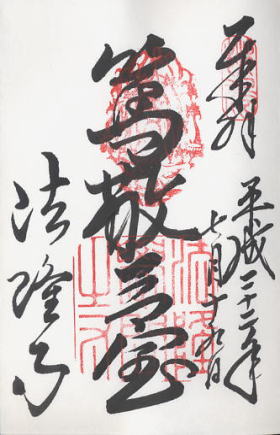 奉拝
平成二十二年
七月十九日
篤敬三宝
法隆寺